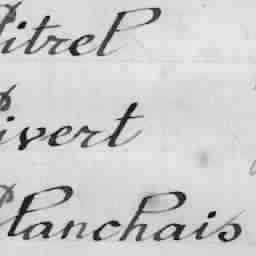 Pitrel
Pivert
Planchais